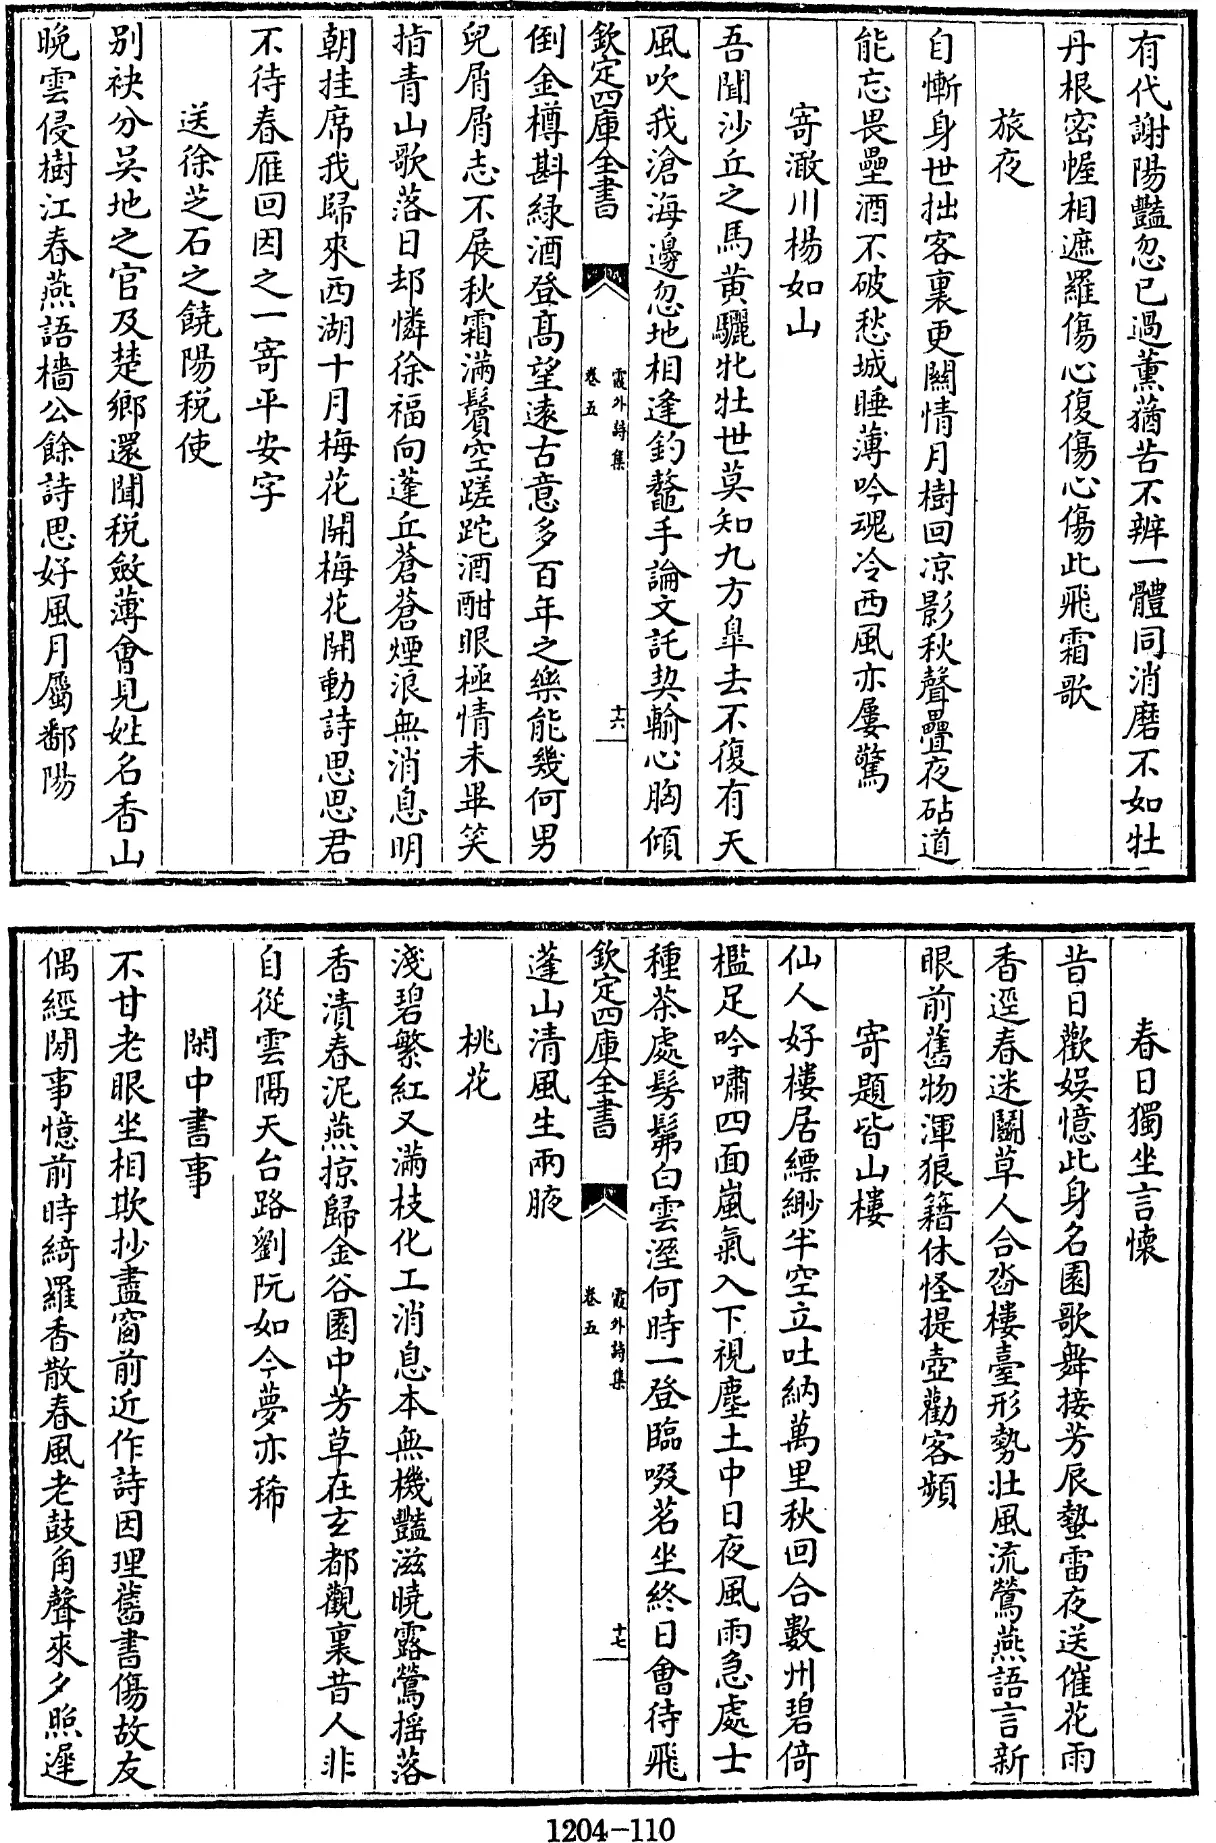 有代謝陽豔忽已過薰蕕苦不辨一體同消磨不如牡
丹根密幄相遮羅傷心復傷心傷此飛霜歌
旅夜
自慚身世拙客裏更關情月樹回凉影秋聲疊夜砧道
能忘畏壘酒不破愁城睡薄吟魂冷西風亦屢驚
寄澉川楊如山
吾聞沙丘之馬黄驪牝牡世莫知九方臯去不復有天
風吹我滄海邊忽地相逢釣鼇手論文託契輸心胸傾
欽定四庫全書
霞外詩集
卷五
十六
倒金樽斟緑酒登髙望逺古意多百年之樂能幾何男
兒屑屑志不展秋霜滿鬢空蹉跎酒酣眼極情未畢笑
指青山歌落日却憐徐福向蓬丘蒼蒼煙浪無消息明
朝挂席我歸來西湖十月梅花開梅花開動詩思思君
不待春雁回因之一寄平安字
送徐芝石之饒陽税使
别袂分吴地之官及楚鄉還聞税斂薄會見姓名香山
晩雲侵樹江春燕語檣公餘詩思好風月屬鄱陽
春日獨坐言懐
昔日歡娱憶此身名園歌舞接芳辰蟄雷夜送催花雨
香逕春迷鬭草人合沓樓臺形勢壮風流鶯燕語言新
眼前舊物渾狼籍休怪提壺勸客頻
寄題皆山樓
仙人好樓居縹緲半空立吐納萬里秋回合數州碧倚
檻足吟嘯四面嵐氣入下視塵土中日夜風雨急處士
種茶處髣髴白雲溼何時一登臨啜茗坐終日會待飛
欽定四庫全書
霞外詩集
卷五
十七
蓬山清風生兩腋
桃花
淺碧繁紅又滿枝化工消息本無機豔滋曉露鶯揺落
香漬春泥燕掠歸金谷園中芳草在玄都觀裏昔人非
自從雲隔天台路劉阮如今夢亦稀
閑中書事
不甘老眼坐相欺抄盡窗前近作詩因理舊書傷故友
偶經閑事憶前時綺羅香散春風老鼓角聲來夕照遲
1204-110